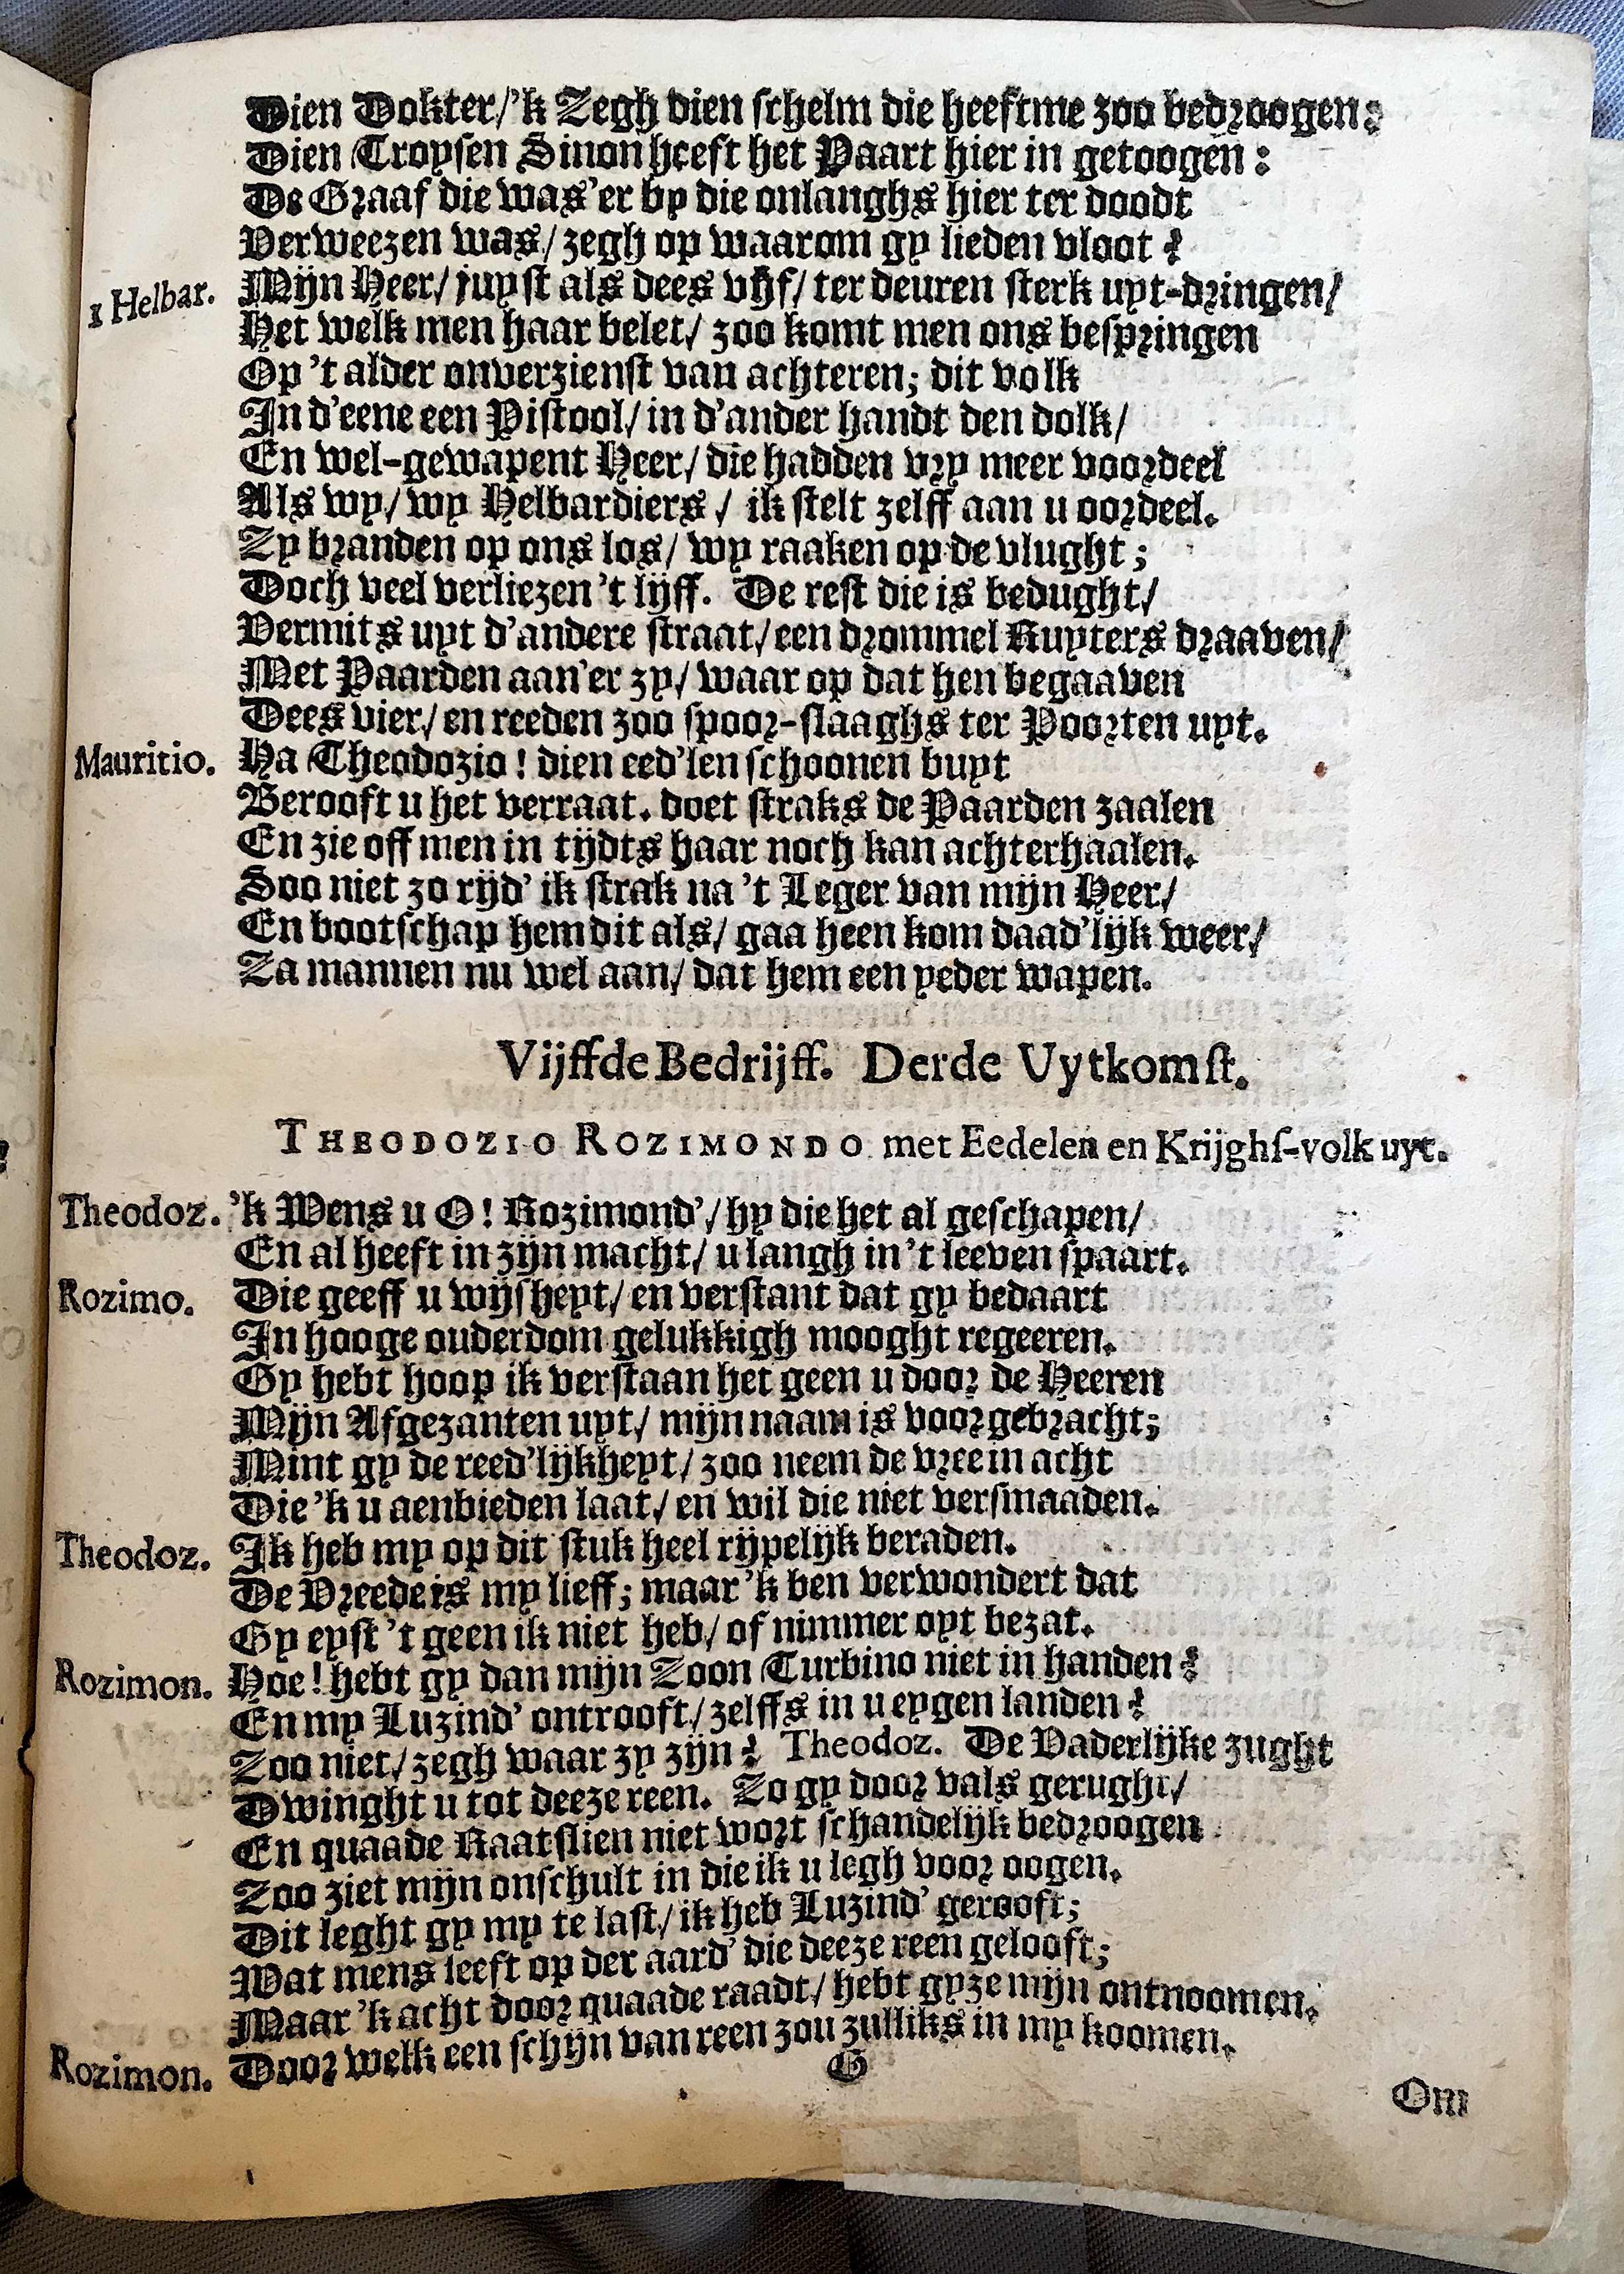 Dien Dokter/'k Zegh dien schelm die heeftme zoo bedroogen:
Dien Troysen Sinon heeft het Paart hier in getoogen:
De Graaf die was'er by die onlanghs hier ter doodt
Verweezen was/zegh op waarom gy lieden vloot?
1 Helbar. Mijn Heer/juyst als dees vijf/ter deuren sterk uyt-dringen/
Het welk men haar belet/zoo komt men ons bespringen
Op 't alder onverzienst van achteren; dit volk
In d'eene een Pistool/in d'ander handt den dolk/
En wel-gewapent Heer/die hadden vry meer voordeel
Als wy/wy Helbardiers/ik stelt zelff aan u oordeel.
Zy branden op ons los/wy raaken op de vlught;
Doch veel verliezen 't lijff. De rest die is bedught/
Vermits uyt d'andere straat/een drommel Ruyters draaven/
Met Paarden aan'er zy/waar op dat hen begaaven
Dees vier/en reeden zoo spoor-slaaghs ter Poorten uyt.
Mauritio. Ha Theodozio! dien eed'len schoonen buyt
Berooft u het verraat. doet straks de Paarden zaalen
En zie off men in tijdts haar noch kan achterhaalen.
Soo niet zo rijd' ik strak na 't Leger van mijn Heer/
En bootschap hem dit als/gaa heen kom daad'lijk weer/
Za mannen nu wel aan/dat hem een yeder wapen.
Vijffde Bedrijff. Derde Uytkomst.
THEODOZIO ROZIMONDO met Eedelen en Krijghs-volk uyt.
Theodoz. 'k Wens u O! Rozimond'/hy die het al geschapen/
En al heeft in zijn macht/u langh in 't leeven spaart.
Rozimo. Die geeff u wijsheyt/en verstant dat gy bedaart
In hooge ouderdom gelukkigh mooght regeeren.
Gy hebt hoop ik verstaan het geen u door de Heeren
Mijn Afgezanten uyt/mijn naam is voorgebracht;
Mint gy de reed'lijkheyt/zoo neem de vree in acht
Die 'k u aenbieden laat/en wil die niet versmaaden.
Theodoz. Ik heb my op dit stuk heel rijpelijk beraden.
De Vreede is my lieff; maar 'k ben verwondert dat
Gy eyst 't geen ik niet heb/of nimmer oyt bezat.
Rozimon. Hoe! hebt gy dan mijn Zoon Turbino niet in handen?
En my Luzind' ontrooft/zelffs in u eygen landen?
Zoo niet/zegh waar zy zijn? Theodoz. De Vaderlijke zught
Dwinght u tot deeze reen. Zo gy door vals gerught/
En quaade Raatslien niet wort schandelijk bedroogen
Zoo ziet mijn onschult in die ik u legh voor oogen.
Dit leght gy my te last/ik heb Luzind' gerooft;
Wat mens leeft op der aard' die deeze reen gelooft;
Maar 'k acht door quaade raadt/hebt gyze mijn ontnoomen.
Rozimon. Door welk een schijn van reen zou zulliks in my koomen.
G
Om